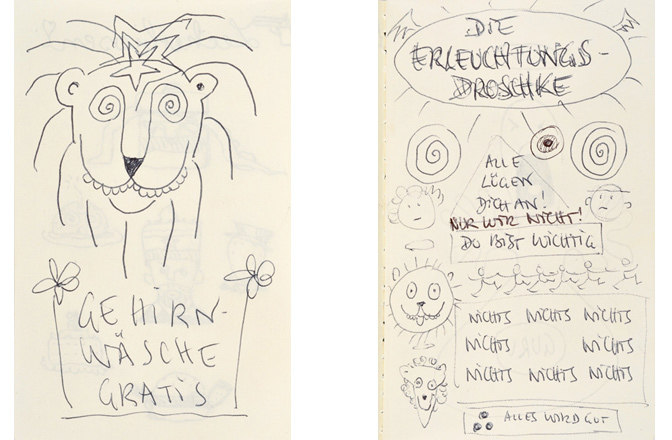 GEHIRN-
WÄSCHE
GRATIS
DIE
ERLEUCHTUNGS-
DROSCHKE
ALLE
LÜGEN
DICH AN!
NUR WIR NICHT!
DU BIST WICHTIG
NICHTS NICHTS NICHTS
NICHTS NICHTS
NICHTS NICHTS NICHTS
ALLES WIRD GUT